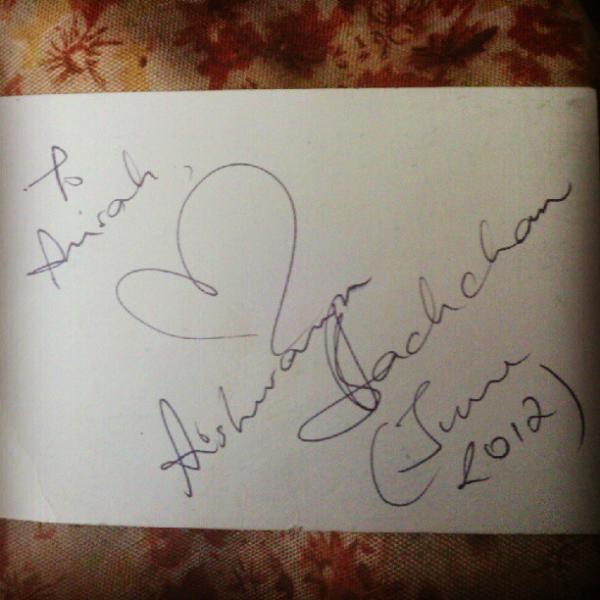 To
Anirah
Aishwarya
Bachchan
(June
2012)